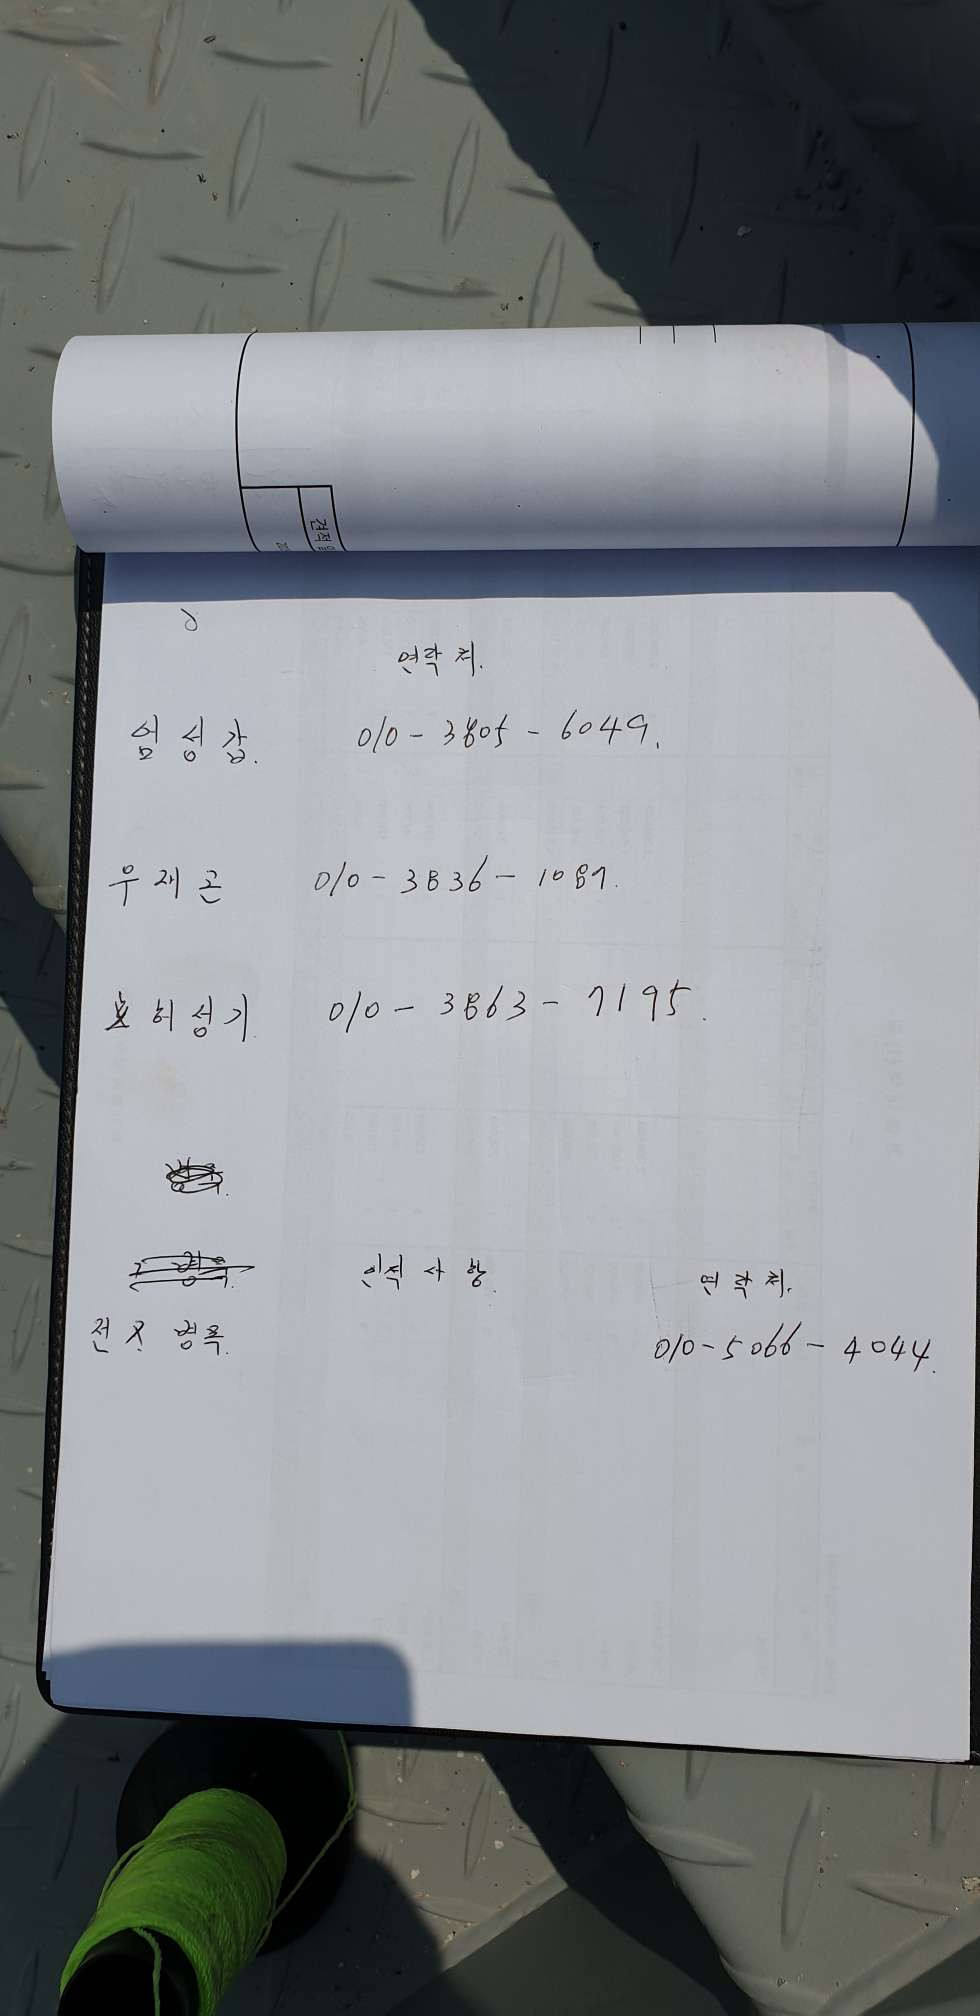 견적일
연락처.
엄성갑. 010-3805-6049.
우재곤 010-3836-1087.
허성기 010-3863-7195.
인적사항. 연락처.
전 병옥. 010-5066-4044.